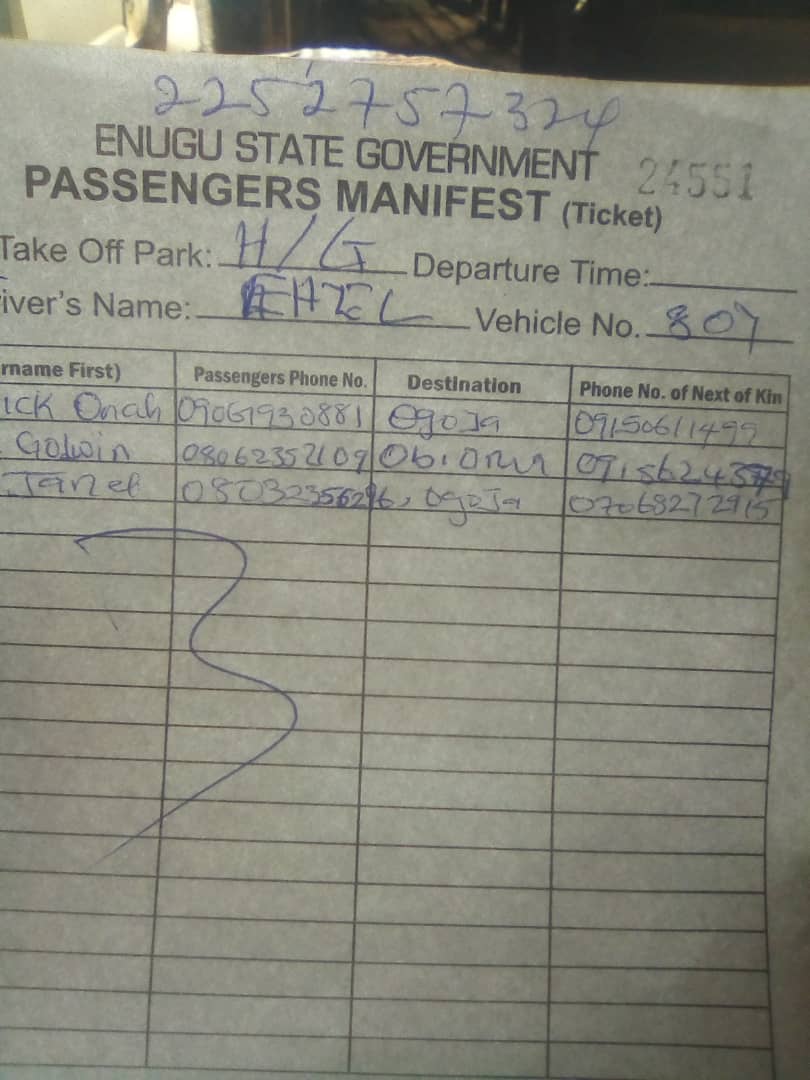 2252757324
ENUGU STATE GOVERNMENT 24551
PASSENGERS MANIFEST (Ticket)
Take Off Park: H/G Departure Time:
iver's Name: Vehicle No. 807
rname First) Passengers Phone No. Destination Phone No. of Next of Kin
ick Onah 09061930881 Ogoja 09150611499
Godwin 08062352109
Janet 08032356296, Ogoja 07068272915
3